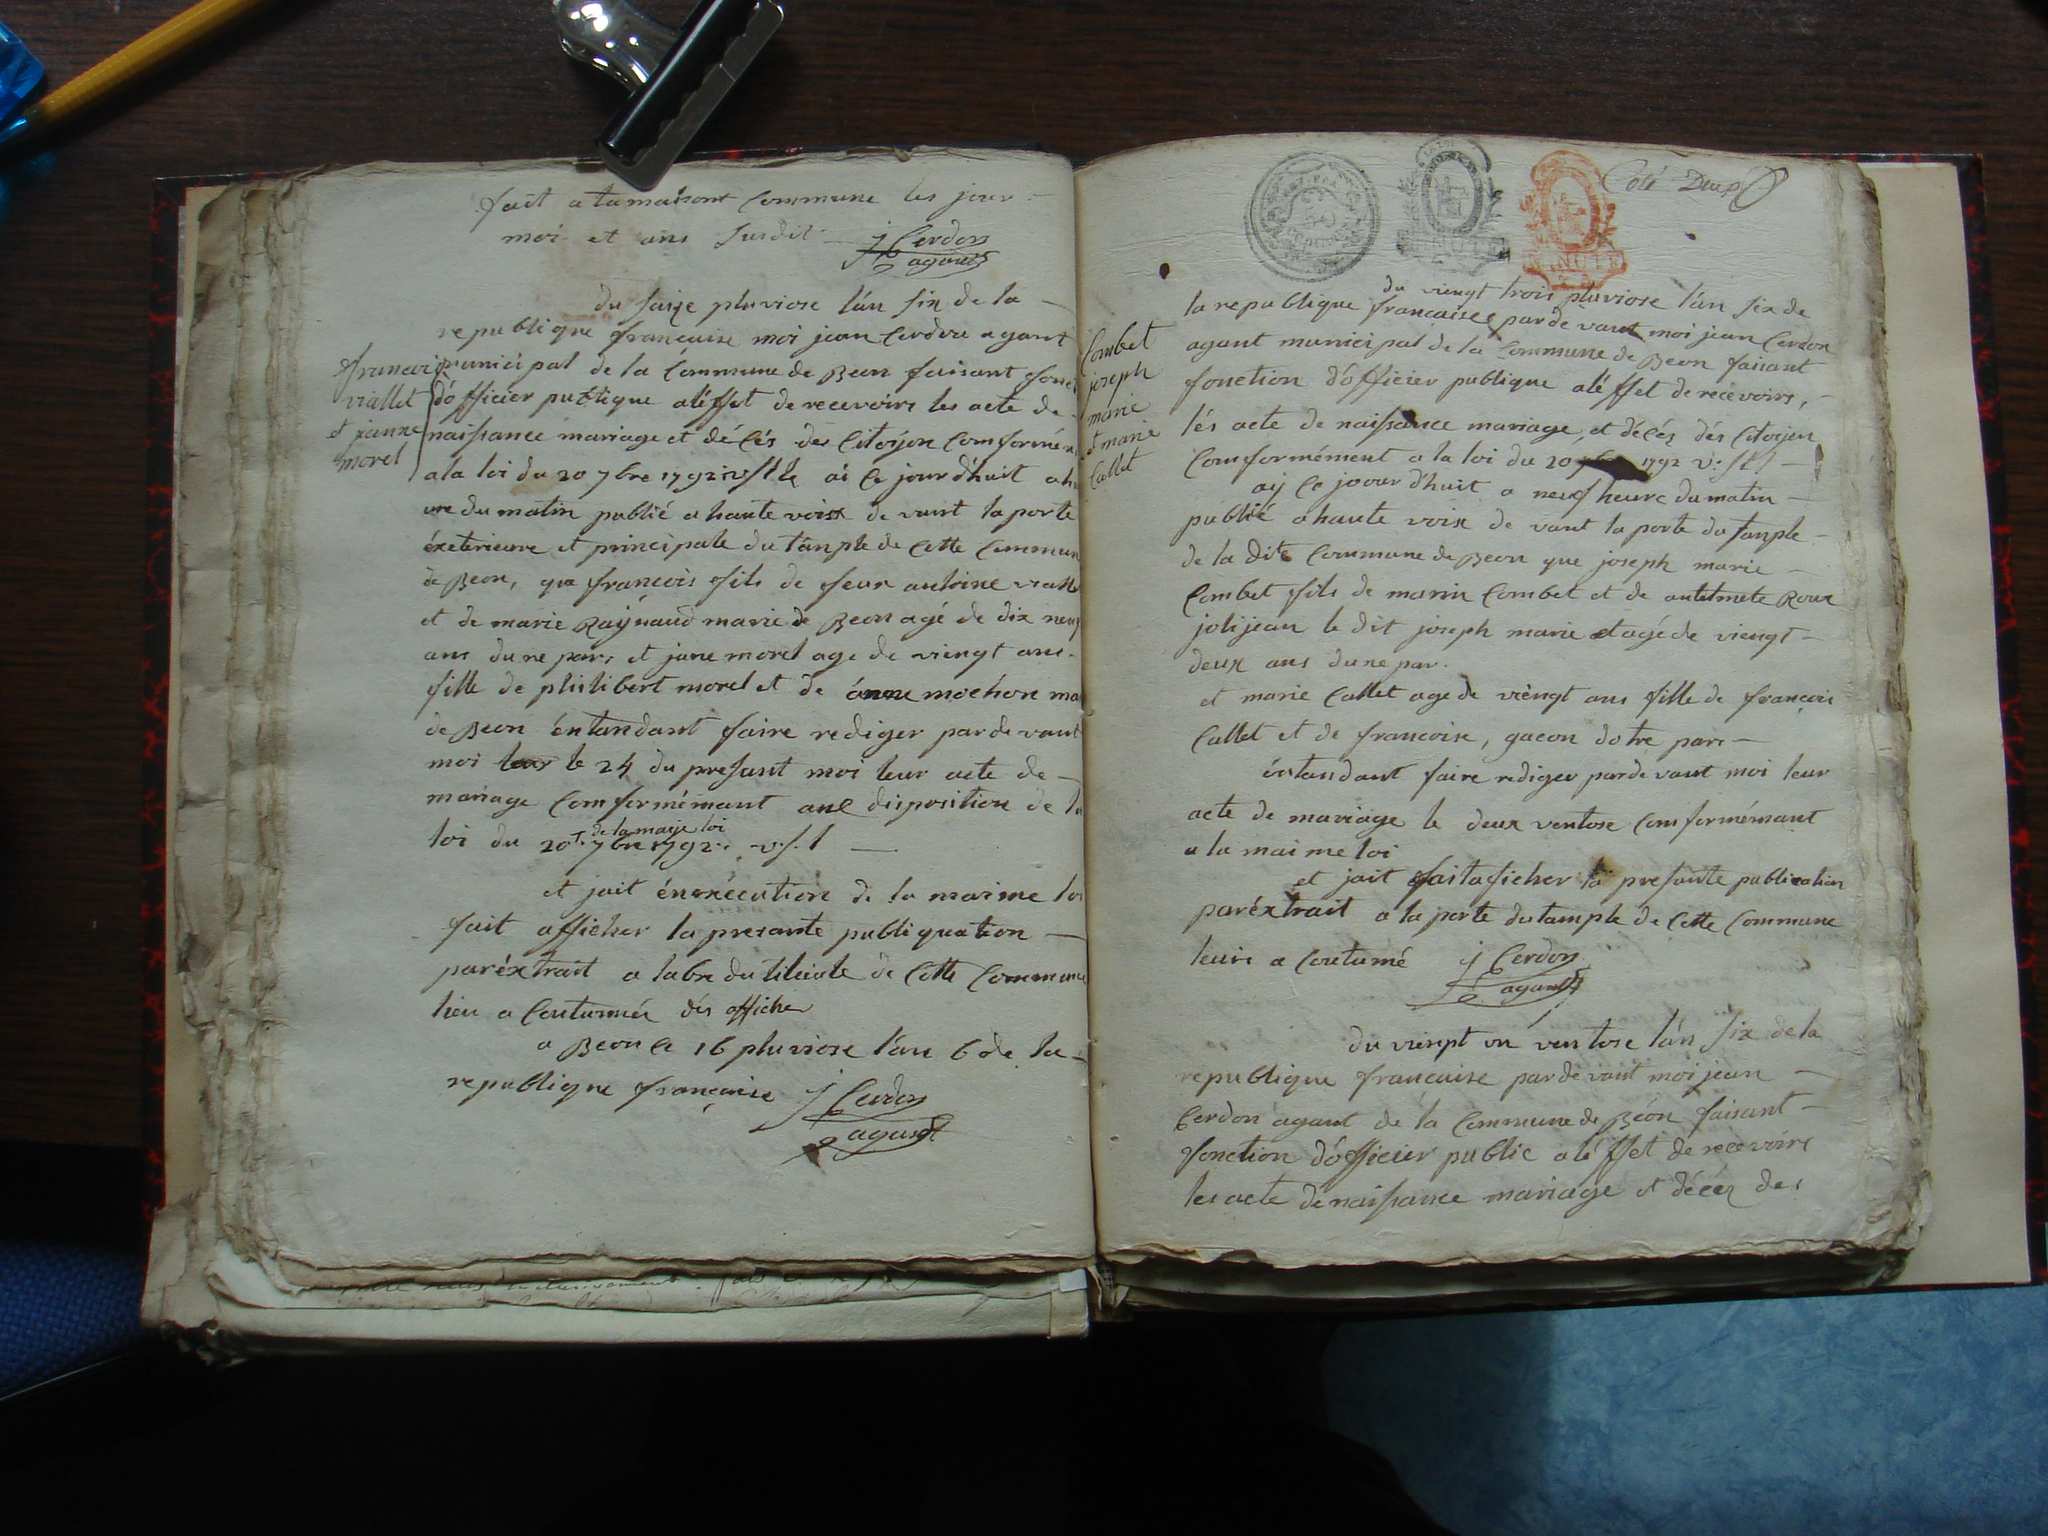 fait a la maisont Commune les jour
moi et ans susdit j Cerdon
agant
du saize pluviose l'an six de la
republique francaise moi jean Cerdon agant
municipal de la Commune de Beon faisant fonct
d'officier publique a l'éffet de recevoirs les acte de
naissance mariage et décés des Citoijen Comformém
a la loi du 20 7bre 1792 ai Ce jour d'huit a h
ure du matin publié a haute voix de vant la porte
éxeterieure et principale du tanple de Cette Commun
de Beon, que francois fils de feux antoine viallet
et de marie Raÿnaud marie de Beon agé de dix neuf
ans du ne pars et jane morel age de viengt ans
fille de philibert morel et de anne mochon ma
de Beon éntandant faire rediger par de vant
moi le 24 du presant moi leur acte de
mariage Comformémant aux disposition de la
de la maije loi
loi du 20 7bre 1792 v.s.t
et jait énexécution de la maime loi
fait afficher la presante publiquation
paréxtrait a de Cette Commune
lieu a Coutumés dés affiche
a Beon Ce 16 pluviose l'an 6 de la
republique françaisse j Cerdon
agant
francois
viallet
et janne
morel
Coté Deux
du viengt trois pluviose l'an six de
la republique francaisse par de vant moi jean Cerdon
agant municipal de la Commune de Beon faisant
fonction d'officier publique a l'éffet de recevoirs,
lés acte de naissance mariage et décéz dés Citoijen
Comformément a la loi du 20 1792 v.s.t
aÿ Ce joour d'huit a neuf heure du matin
publié a haute voix de vant la porte du tanple
de la dite Commune de Beon que joseph marie
Combet fils de marin Combet et de antelmete Roux
jolijean le dit joseph marie et agé de viengt
deux ans du ne par.
et marie Callet age de viengt ans fille de françois
Callet et de francoise, gacon dotre pars
éntandant faire rediger par de vant moi leur
acte de mariage le deux ventose Comformémant
a la maime loi
et jait fait afficher la presante publication
paréxtrait a la porte du tample de Cette Commune
leurs a Coutumé j Cerdon
agant
Combet
joseph
marie
et marie
Callet
du viengt un ventose l'an six de la
republique francaise par de vant moi jean
Cerdon agant de la Commune de Béon faisant
fonction d'officier public a l'éffet de recevoirs
les acte de naissance mariage et décéz des